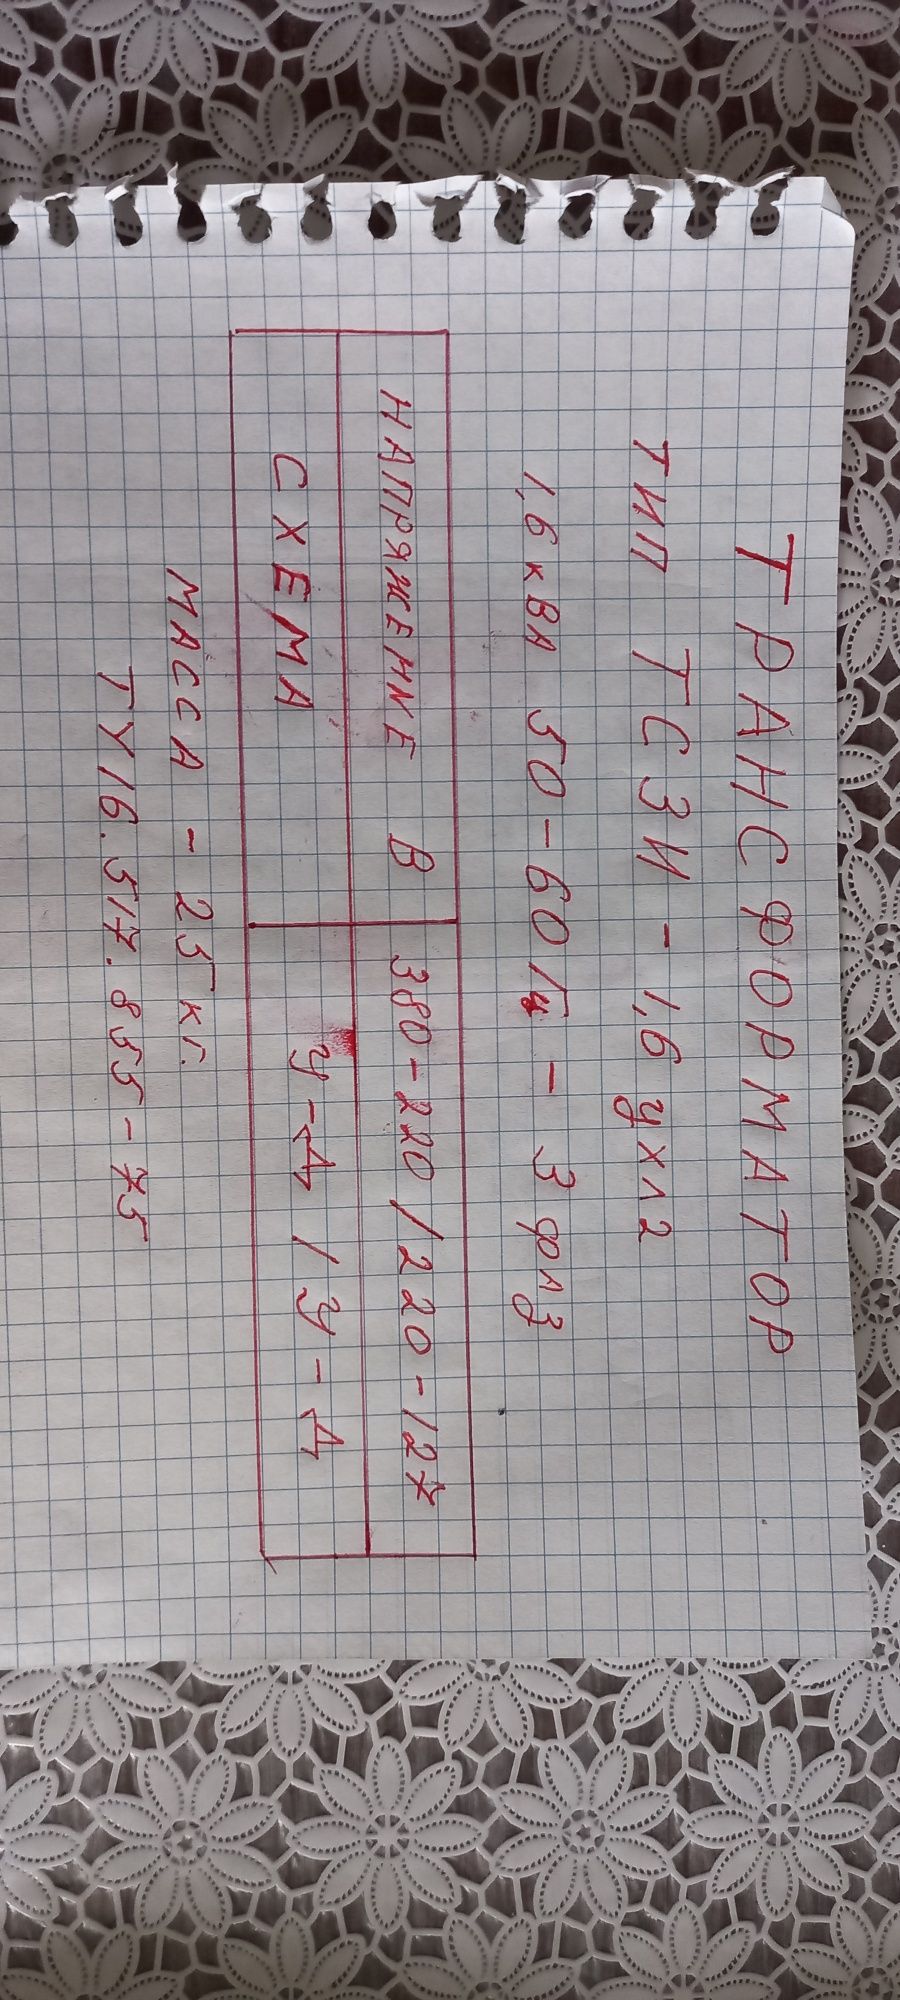 ТРАНСФОРМАТОР
ТИП ТСЗИ - 1,6 УХЛ2
1,6 кВА 50-60 Гц - 3 фаз
НАПРЯЖЕНИЕ В 380-220 / 220-127
СХЕМА У-Δ / У-Δ
МАССА - 25 кг.
ТУ16.517.855-75